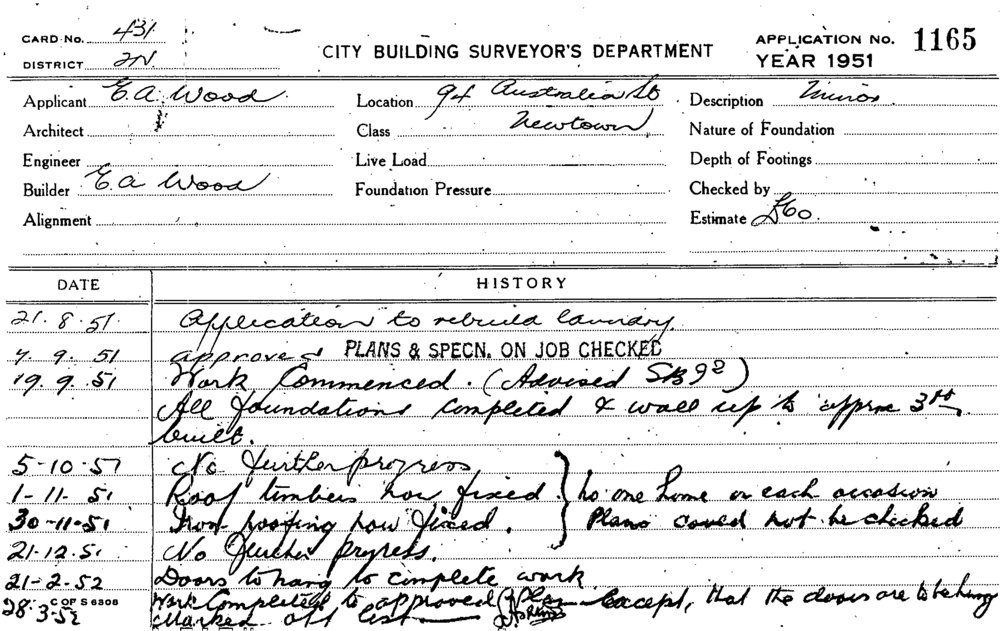 CARD No. 431
DISTRICT 2N
CITY BUILDING SURVEYOR'S DEPARTMENT
APPLICATION No. 1165
YEAR 1951
Applicant E.A. Wood
Location 94 Australia St
Description Minor
Architect
Class Newtown
Nature of Foundation
Engineer
Live Load
Depth of Footings
Builder E.A Wood
Foundation Pressure
Checked by
Alignment
Estimate £60.
DATE HISTORY
21.8.51. Application to rebuild laundry.
7.9.51 approved PLANS & SPECN. ON JOB CHECKED
19.9.51 Work Commenced. (Advised
All foundations completed & wall up to approx 3ft
built.
5-10-51 No further progress
1-11-51 Roof timbers now fixed } no one home on each occasion
30-11-51 Iron roofing now fixed. Plans could not be checked
21-12-51 No further progress.
21-2-52 Doors to hang to complete work
28.3.52 Work Completed to approved plan Except, that the doors are to be hung
C OF S 6308
Marked off list